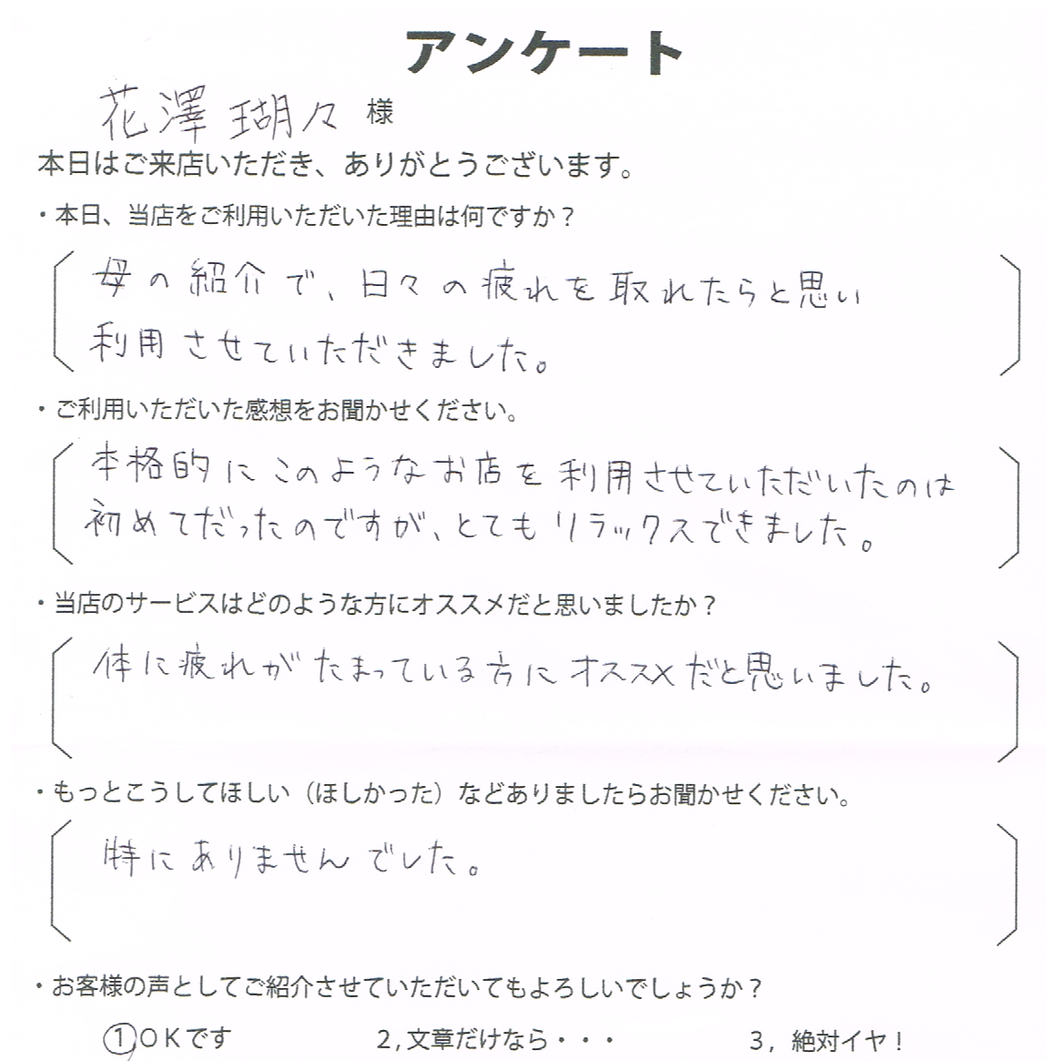 アンケート
花澤 瑚々 様
本日はご来店いただき、ありがとうございます。
・本日、当店をご利用いただいた理由は何ですか？
母の紹介で、日々の疲れを取れたらと思い
利用させていただきました。
・ご利用いただいた感想をお聞かせください。
本格的にこのようなお店を利用させていただいたのは
初めてだったのですが、とてもリラックスできました。
・当店のサービスはどのような方にオススメだと思いましたか？
体に疲れがたまっている方にオススメだと思いました。
・もっとこうしてほしい（ほしかった）などありましたらお聞かせください。
特にありませんでした。
・お客様の声としてご紹介させていただいてもよろしいでしょうか？
1,ＯＫです 2,文章だけなら・・・ 3，絶対イヤ！